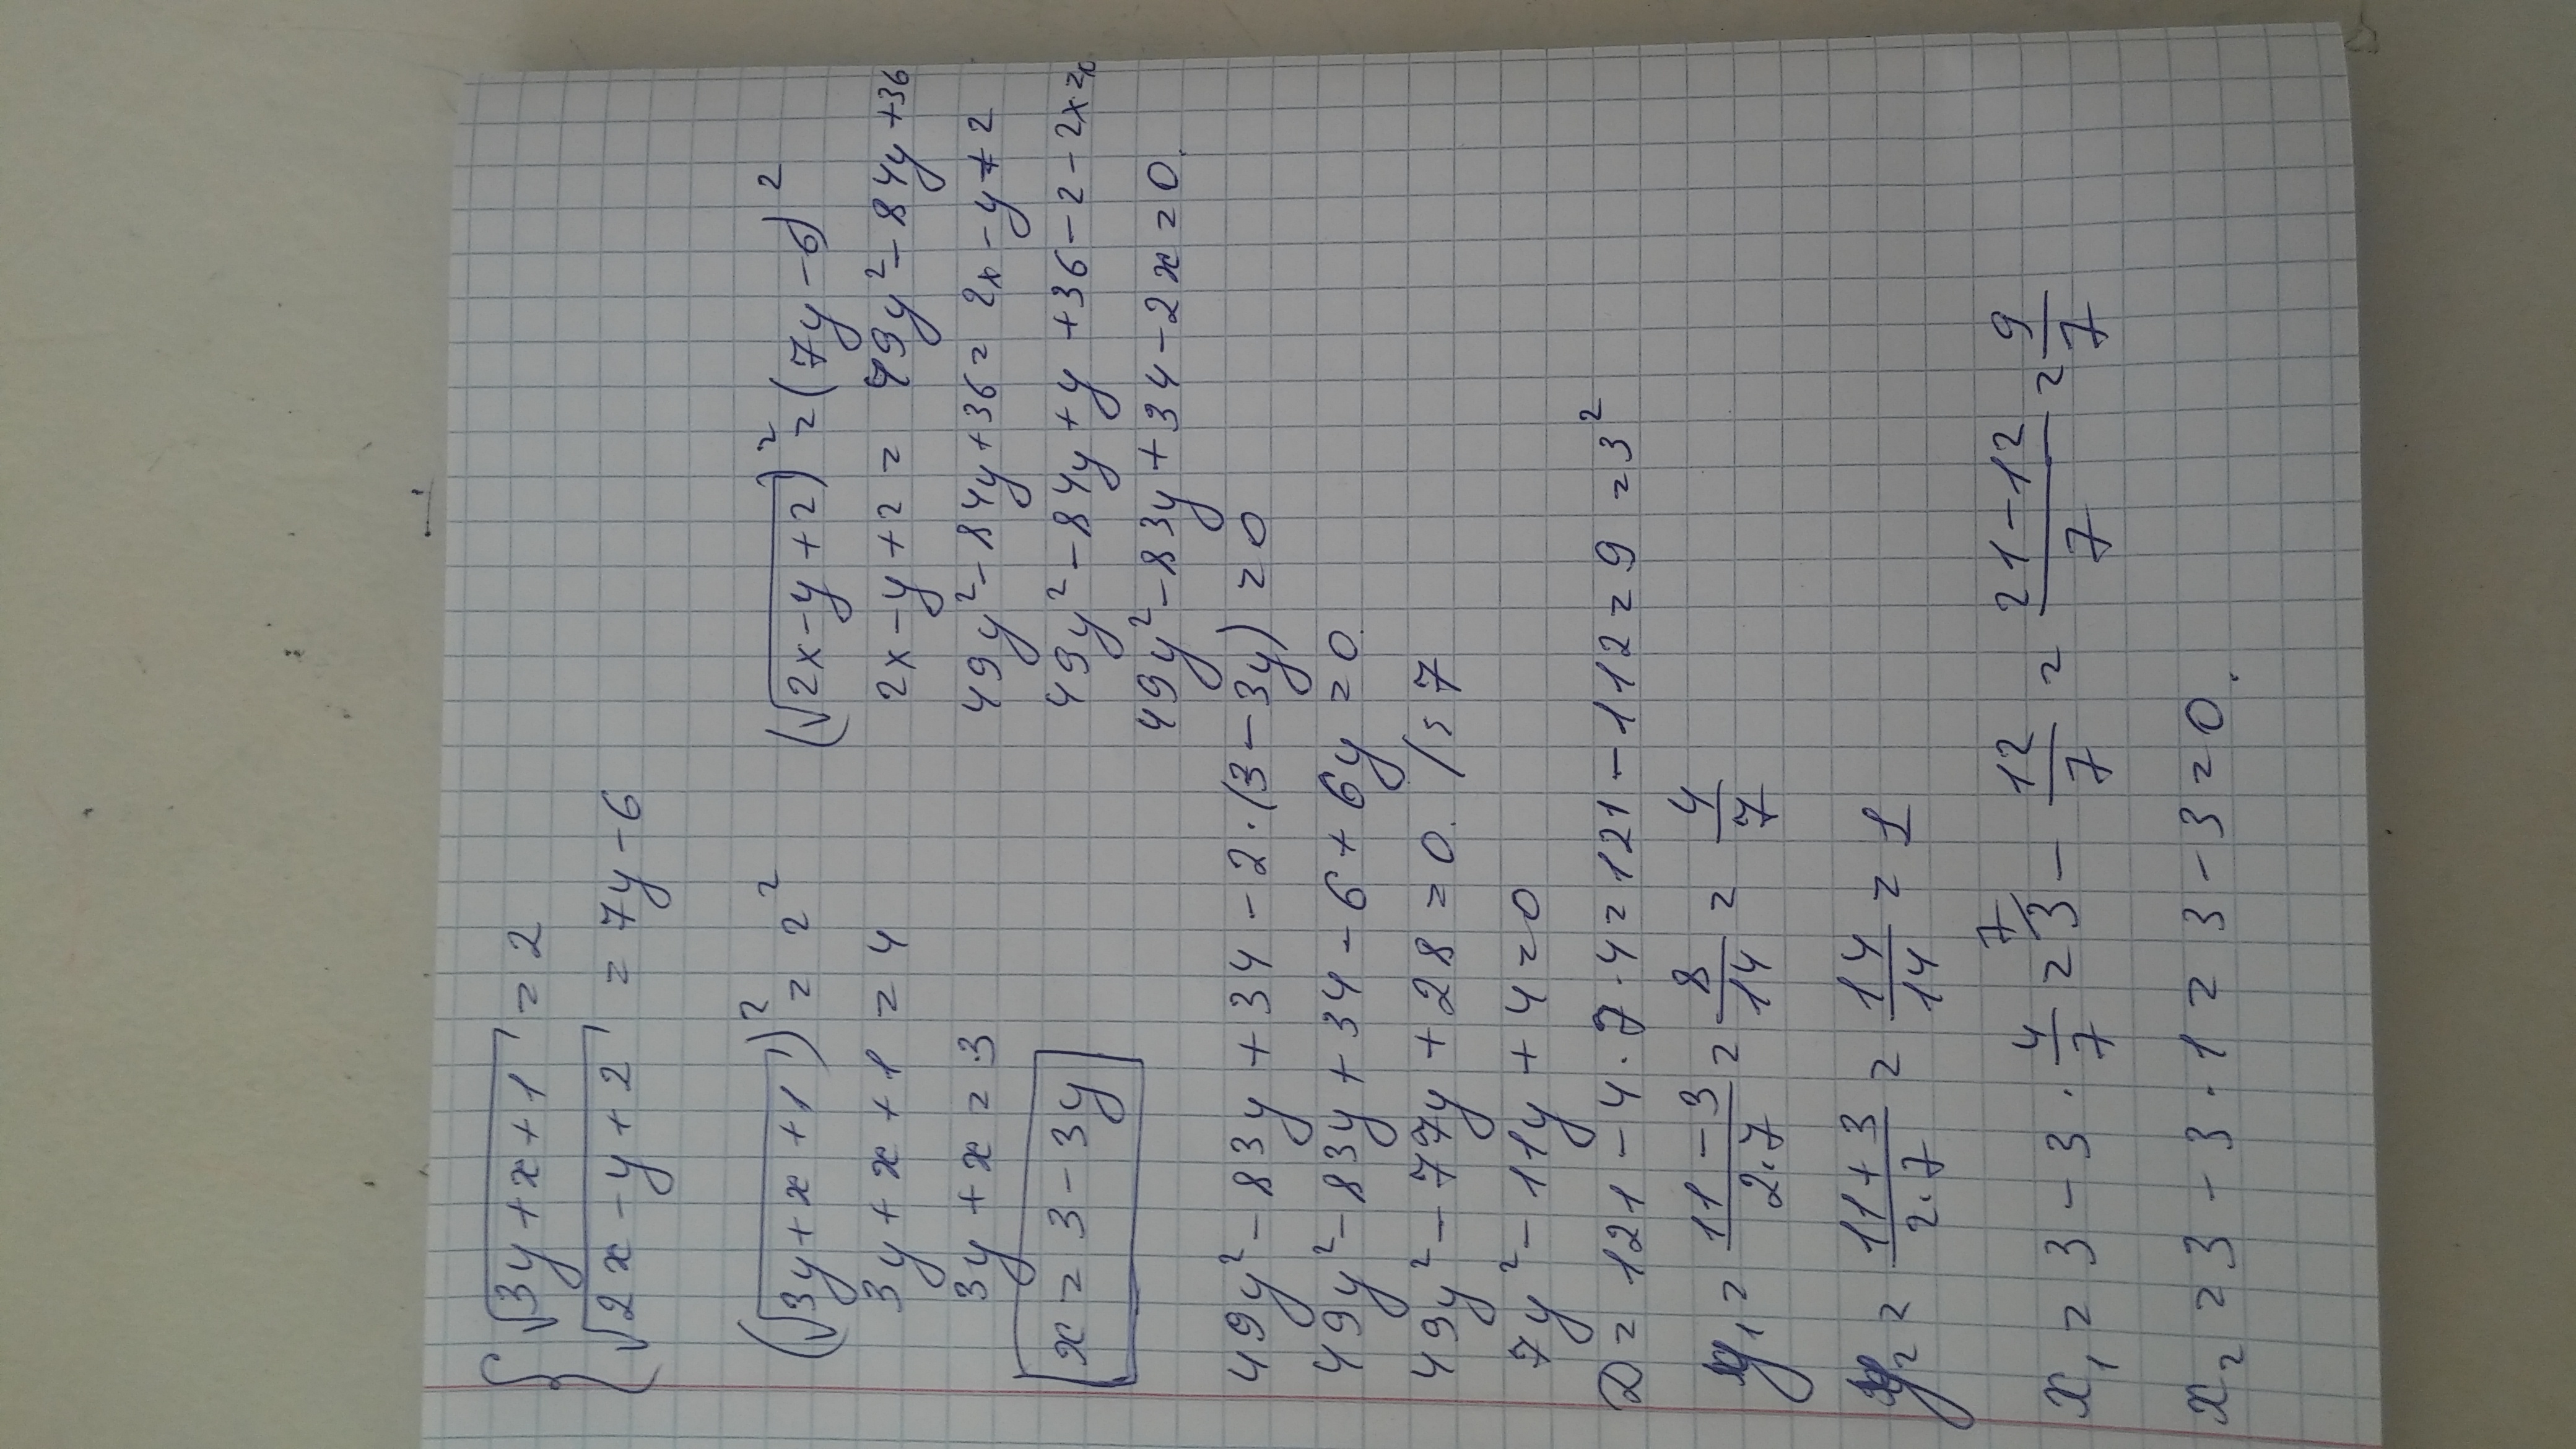 { √(3y + x + 1) = 2
√(2x - y + 2) = 7y - 6
(√(3y + x + 1))² = 2²
3y + x + 1 = 4
3y + x = 3
x = 3 - 3y
(√(2x - y + 2))² = (7y - 6)²
2x - y + 2 = 49y² - 84y + 36
49y² - 84y + 36 = 2x - y + 2
49y² - 84y + y + 36 - 2 - 2x =
49y² - 83y + 34 - 2x = 0.
49y² - 83y + 34 - 2·(3 - 3y) = 0
49y² - 83y + 34 - 6 + 6y = 0.
49y² - 77y + 28 = 0. /:7
7y² - 11y + 4 = 0
D = 121 - 4·7·4 = 121 - 112 = 9 = 3²
y₁ = (11 - 3)/(2·7) = 8/14 = 4/7
y₂ = (11 + 3)/(2·7) = 14/14 = 1
x₁ = 3 - 3 · 4/7 = ⁷/3 - 12/7 = (21 - 12)/7 = 9/7
x₂ = 3 - 3 · 1 = 3 - 3 = 0.